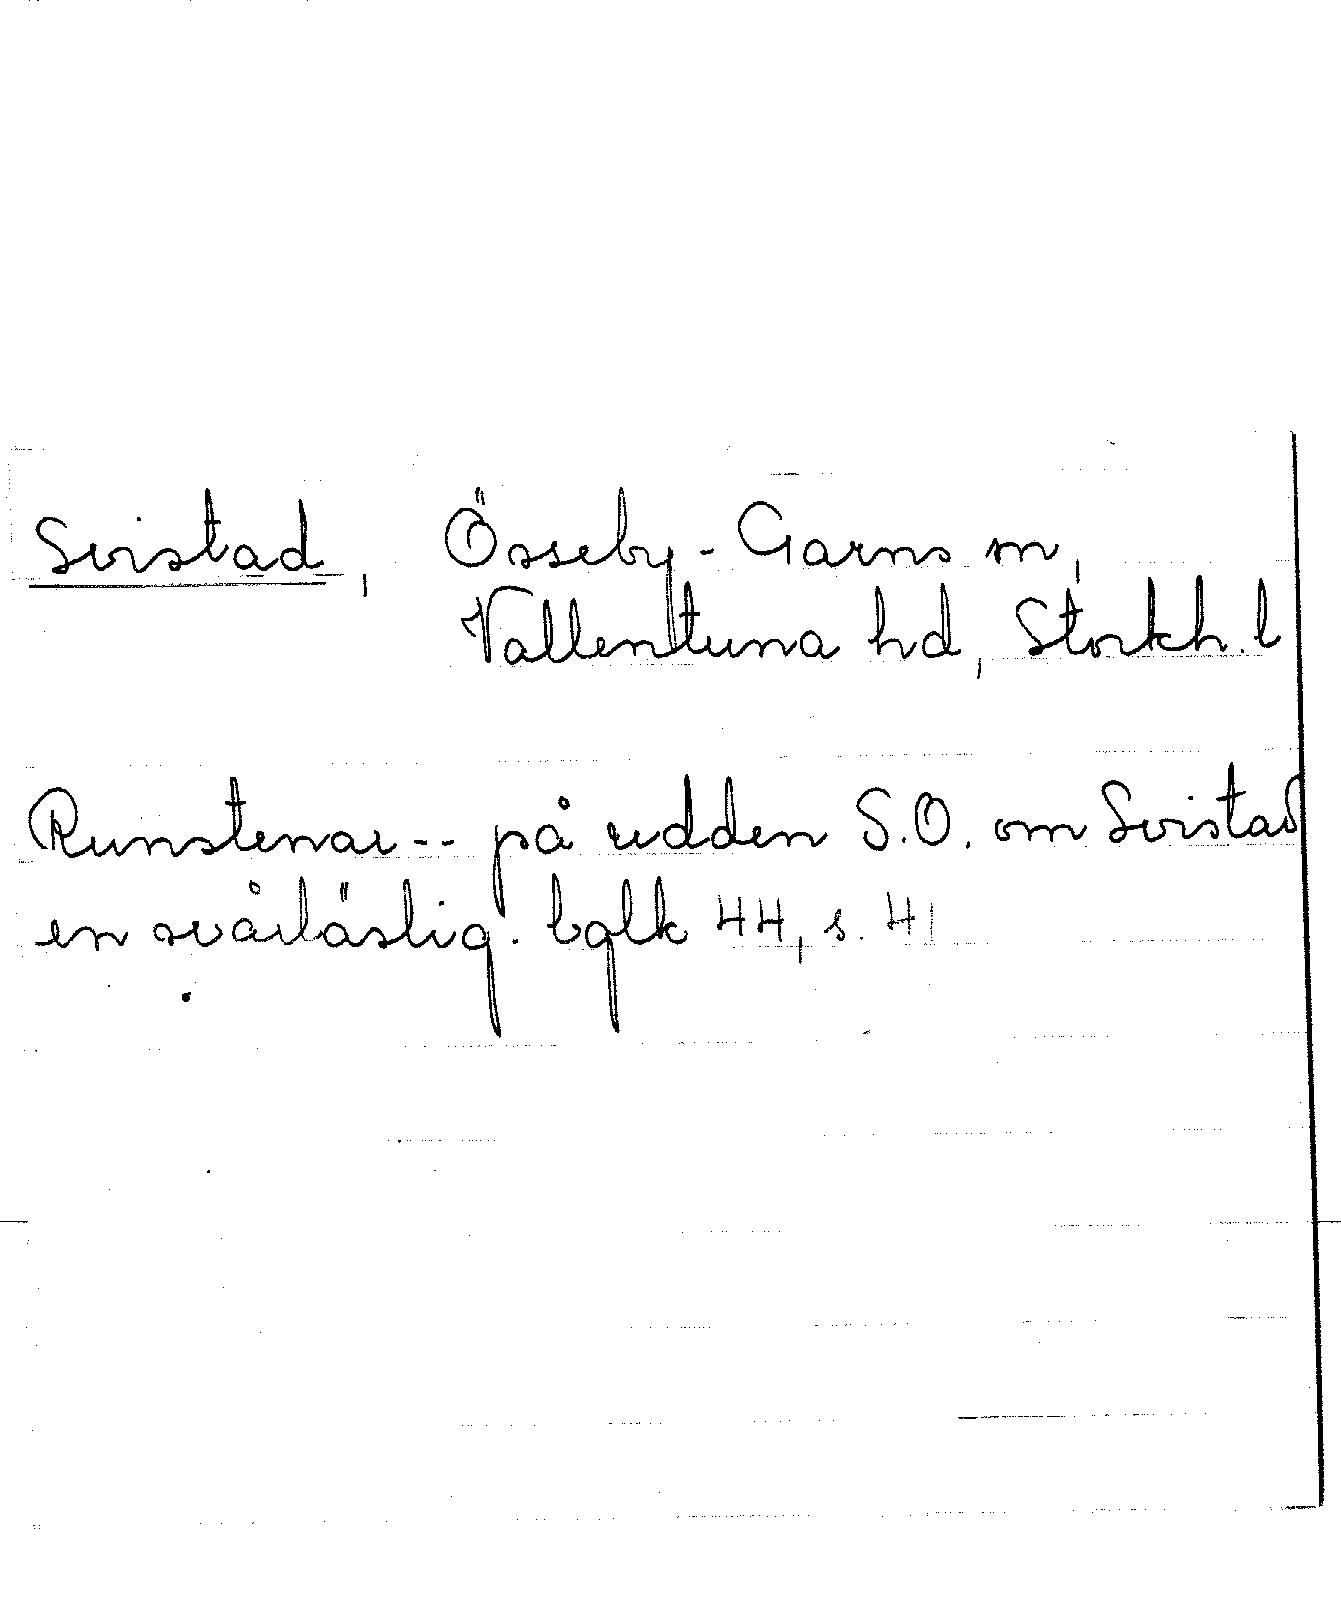 Svistad, Össeby-Garns sn,
Vallentuna hd, Stockh. l
Runstenar -- på udden S.O. om Svistad
en svårläslig. bglk 44, s. 41